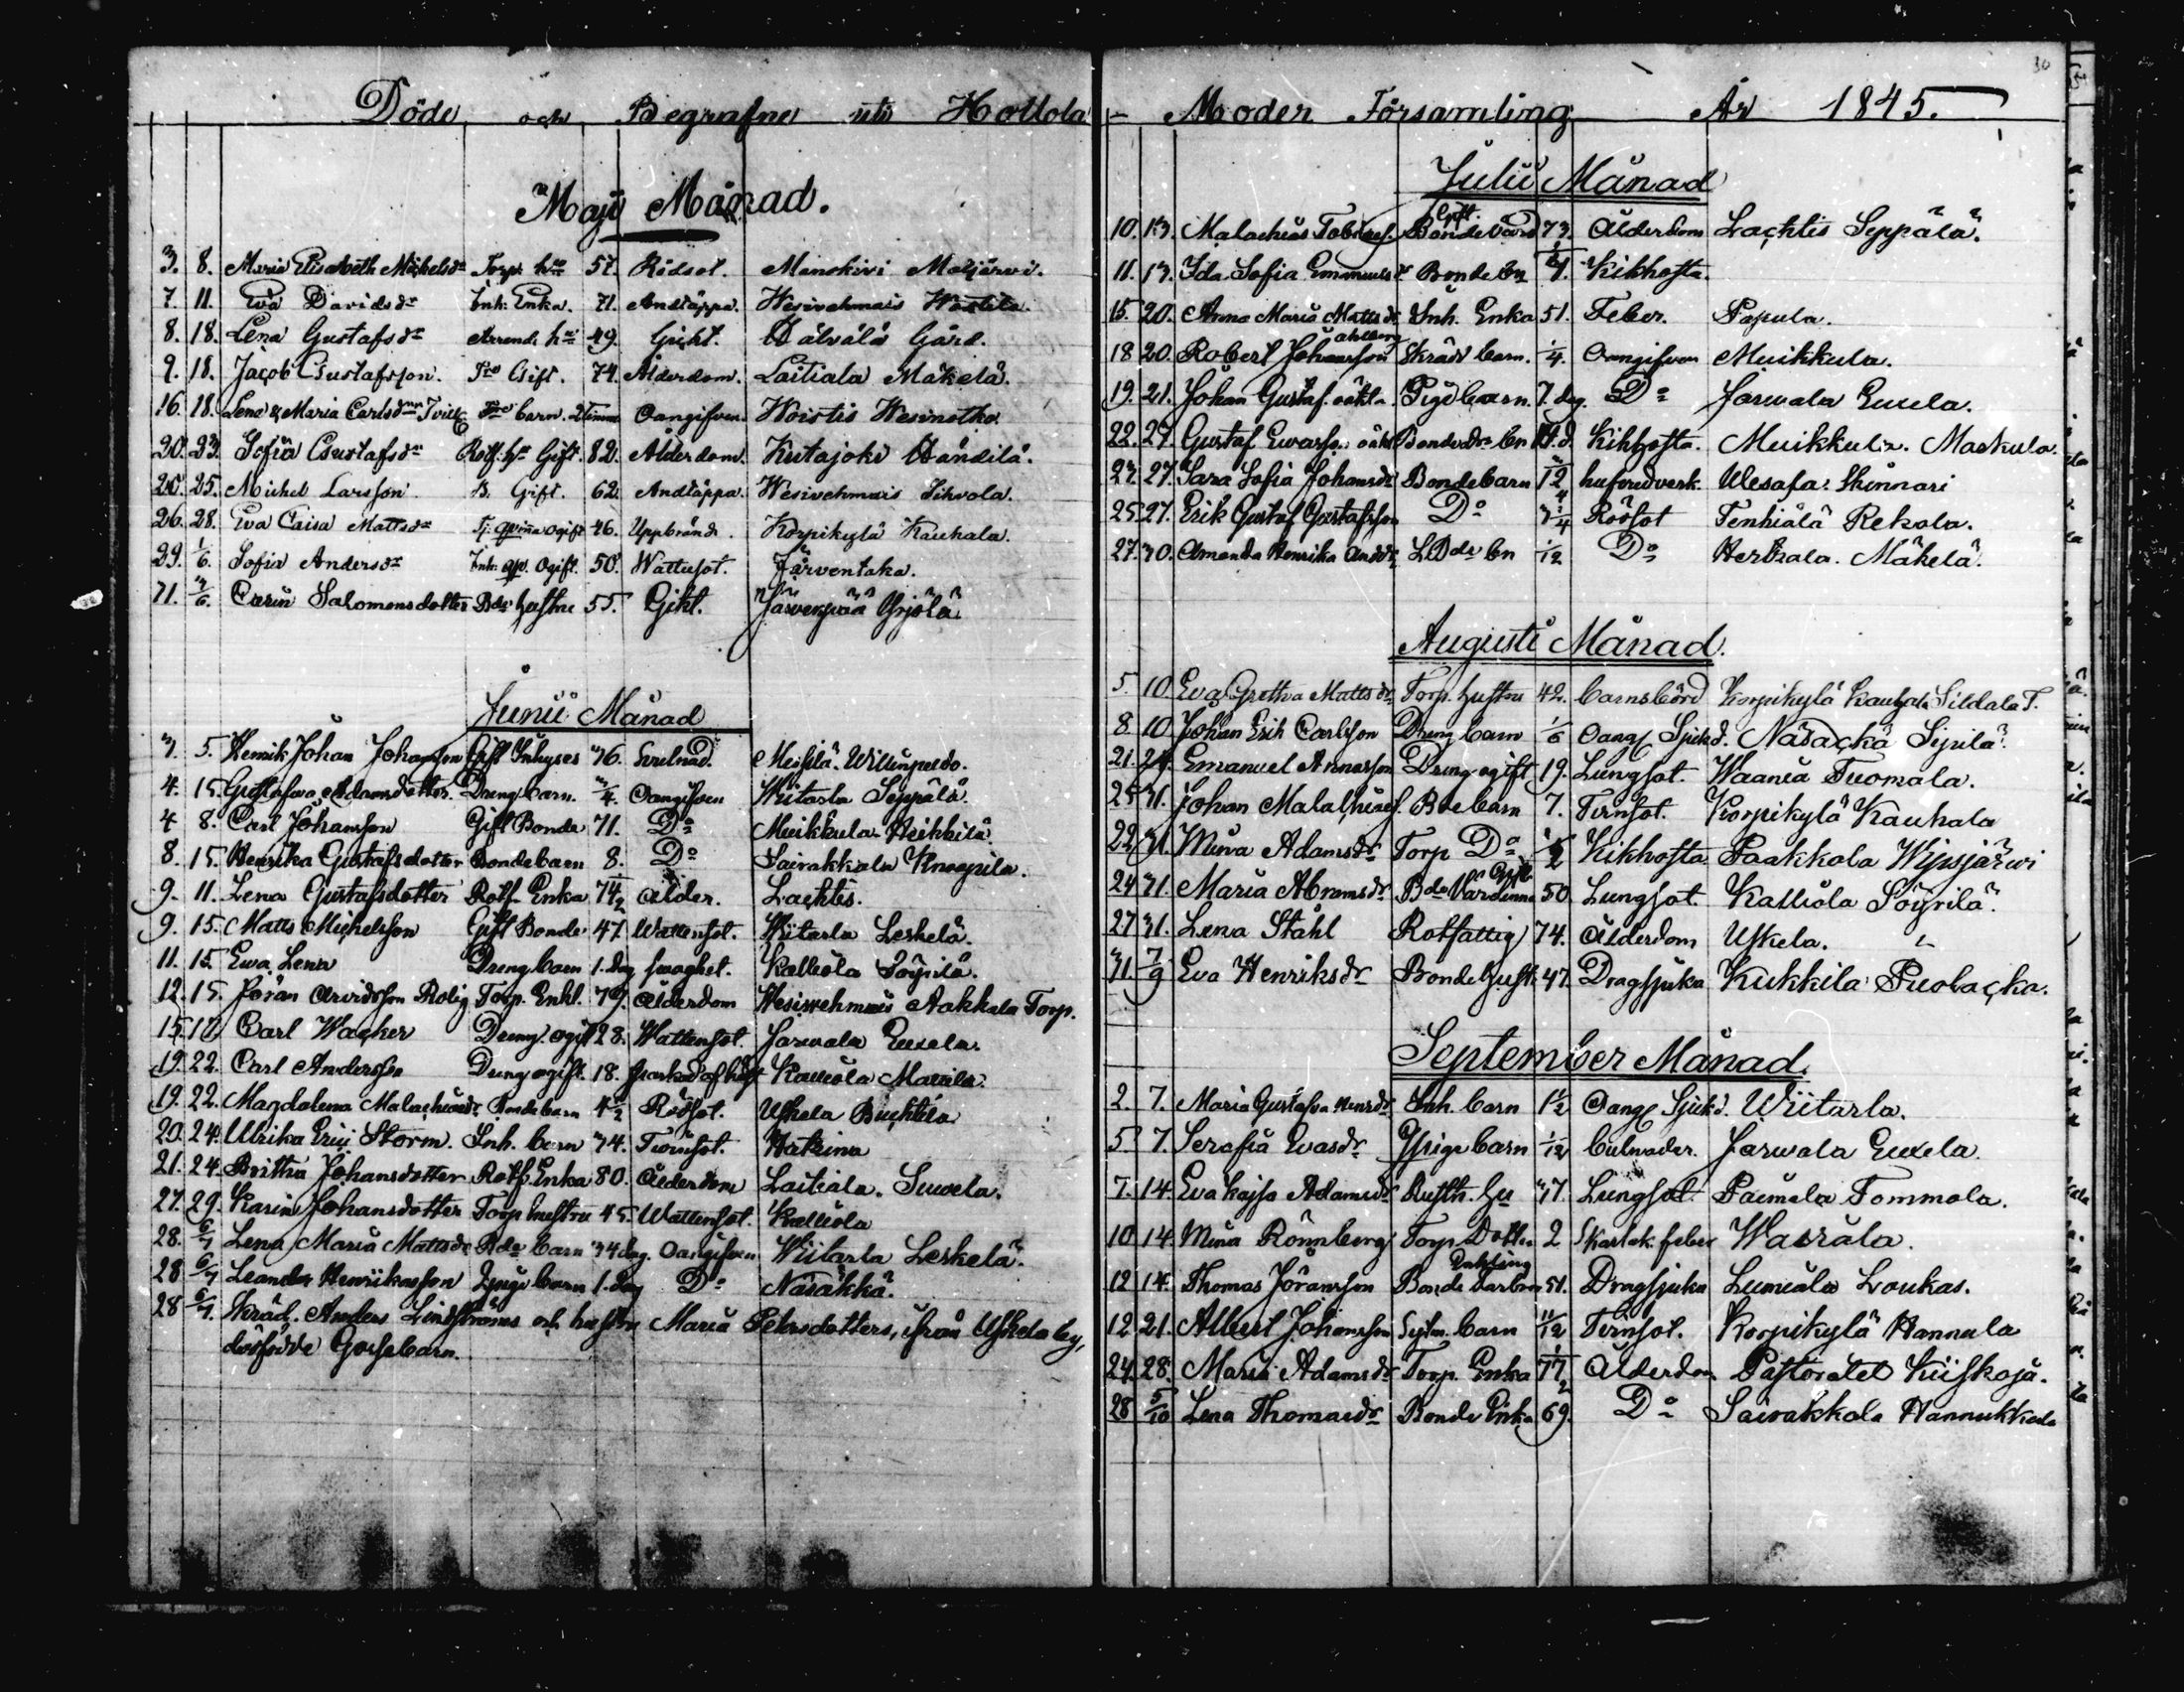 Döde och Begrafne uti Hollola
Maji Månad.
3. 8. Maria Elisabeth Michelsdr Torp. hu 57. Rödsot. Manskivi Matjärvi.
7. 11. Eva Davidsdr Inh. Enka. 71. Andtäppa. Wesivehmais
8. 18. Lena Gustafsdr Arrend. hu 49. Gickt. Wälvälä Gård.
9. 18. Jacob Gustafsson. Gift. 74. Ålderdom. Laitiala Mäkelä.
16. 18. Lena & Maria Carlsdr barn. 2 timme Oangifven. Noistis
20. 23. Sofia Gustafsdr Rotf. hu Gift. 82. Ålderdom. Kutajoki Händilä.
20. 25. Michel Larsson. B. Gift. 62. Andtäppa. Wesivehmais Sihvola.
26. 28. Eva Caisa Mattsdr Tj. qvinna ogift 46. Uppbränd. Korpikylä Kauhala.
29. 1/6. Sofia Andersdr Inh. qv. Ogift. 50. Wattusot. Järventaka.
31. 3/6. Carin Salomonsdotter Bde hustru 55. Gikt. Järvenpää Yrjölä.
Junii Månad
3. 5. Henrik Johan Johansson Gift Inhyses 36. Messilä.
4. 15. Gustafava Adamsdotter. Dreng barn. 3/4. Oangifven Wiitarla Seppälä.
4 8. Carl Johansson Gift Bonde 71. Do Muikkula Heikkilä.
8. 15. Henrika Gustafsdotter Bondebarn 8. Do Sairakkala Knaapila.
9. 11. Lena Gustafsdotter Rotf. Enka 74 1/2 Ålder. Lachtis.
9. 15. Matts Michelsson Gift Bonde 47 Wattensot. Wiitarla Leskelä.
11. 15. Ewa Lena Dreng barn 1. Dag svaghet. Kalliola Söyrilä.
12. 15. Jöran Arvidsson Rolig Torp. Enkl. 79. Ålderdom Wesivehmais Aakkala Torp.
15. Carl Wacker Dreng. ogift 28. Wattensot. Jarwala Euxela.
19. 22. Carl Andersson Dreng ogift. 18. Kalliola Mattila.
19. 22. Magdalena Malachiasdr Bondebarn 4 1/2 Rödsot. Uskela Buchtila.
20. 24. Ulrika Erici Storm. Inh. barn 34. Tvinsot. Hatsina
21. 24. Britha Johansdotter Rotf. Enka 80. Ålderdom Laitiala. Suvela.
27. 29. Karin Johansdotter Torp hustru 45. Wattensot. Kalliola
28. 6/7 Lena Maria Mattsdr Bde barn 34 dag. Oangifven Wiitarla Leskelä.
28 6/7 Leander Henriksson Ypige barn 1. Dag Do Näsäkkä.
28 6/7. Skräd. Anders Lindströms och hustru Maria Petersdotters, ifrån Uskela by,
dödfödde Gossebarn.
- Moder Församling År 1845.
30
Julii Månad
10. 13. Malachias Tobiass. Gift. Bondevärd 73. Ålderdom Lachtis Seppälä.
11. 13. Ida Sofia Emanuelsdr Bonde bn Kikhosta.
15. 20. Anna Maria Mattsdr Inh. Enka 51. Feber. Papula.
18 20. Robert Johansson Ahlberg Skräd. barn. 1/4. Oangifven Muikkula.
19. 21. Johan Gustaf. oäkta Pige barn. 7. dag. Do Jarwala Euxela.
22. 27. Gustaf Evasso. oäkt Kikhosta. Muikkula. Maskula.
23. 27. Sara Sofia Johansdr Bondebarn hufvudverk. Ulesafa. Skinnari
25 27. Erik Gustaf Gustafsson Do 3 1/4 Rödsot Tenhiälä Rekola.
27. 30. Amanda Henrika Andsdr LBde bn 1/12 Do Herrala. Mäkelä.
Augusti Månad.
5. 10. Eva Gretha Mattsdr Torp. hustru 42. barnsbörd Korpikylä Kauhala Sildala T.
8. 10 Johan Erik Carlsson Dreng barn 1/6 Oangf. Sjukd. Näsackä Sipilä.
21. 24. Emanuel Annasson Dreng ogift 19. Lungsot. Waania Tuomala.
25 31. Johan Malachiass. Bde barn 7. Tvinsot. Korpikylä Kauhala
22 31. Mina Adamsdr Torp Do 1/2 Kikhosta Paakkola Wipsjärwi
24 31. Maria Abramsdr Gift Bde Värdinna 50 Lungsot. Kalliola Söyrilä.
27 31. Lena Ståhl Rotfattig 74. Ålderdom Uskela.
31. 7/9 Eva Henriksdr Bonde hust. 47. Dragsjuka Kukkila Puolacka.
September Månad.
2. 7. Maria Gustafva Henrdr Inh. barn 1 1/2 Oangf. Sjukd. Wiitarla.
5. 7. Serafia Evasdr Ypige barn 1/12 bulnader. Jarwala Euxela.
7. 14. Eva Kajsa Adamsdr Rusth. hu 37. Lungsot Paimela Tommola.
10 14. Mina Rönnberg Torp Dotter 2 Skarlak. feber Wasräla.
12 14. Thomas Jöransson Bonde 51. Dragsjuka Lumiala Loukas.
12. 21. Albert Johansson Sytn. barn 11/12 Tvinsot. Korpikylä Hannula
24. 28. Maria Adamsdr Torp. Enka 77 1/2 Ålderdom Pastoratet Kiiskojä.
28 5/10 Lena Thomasdr Bonde Enka 69. Do Sairakkala Hannukkala